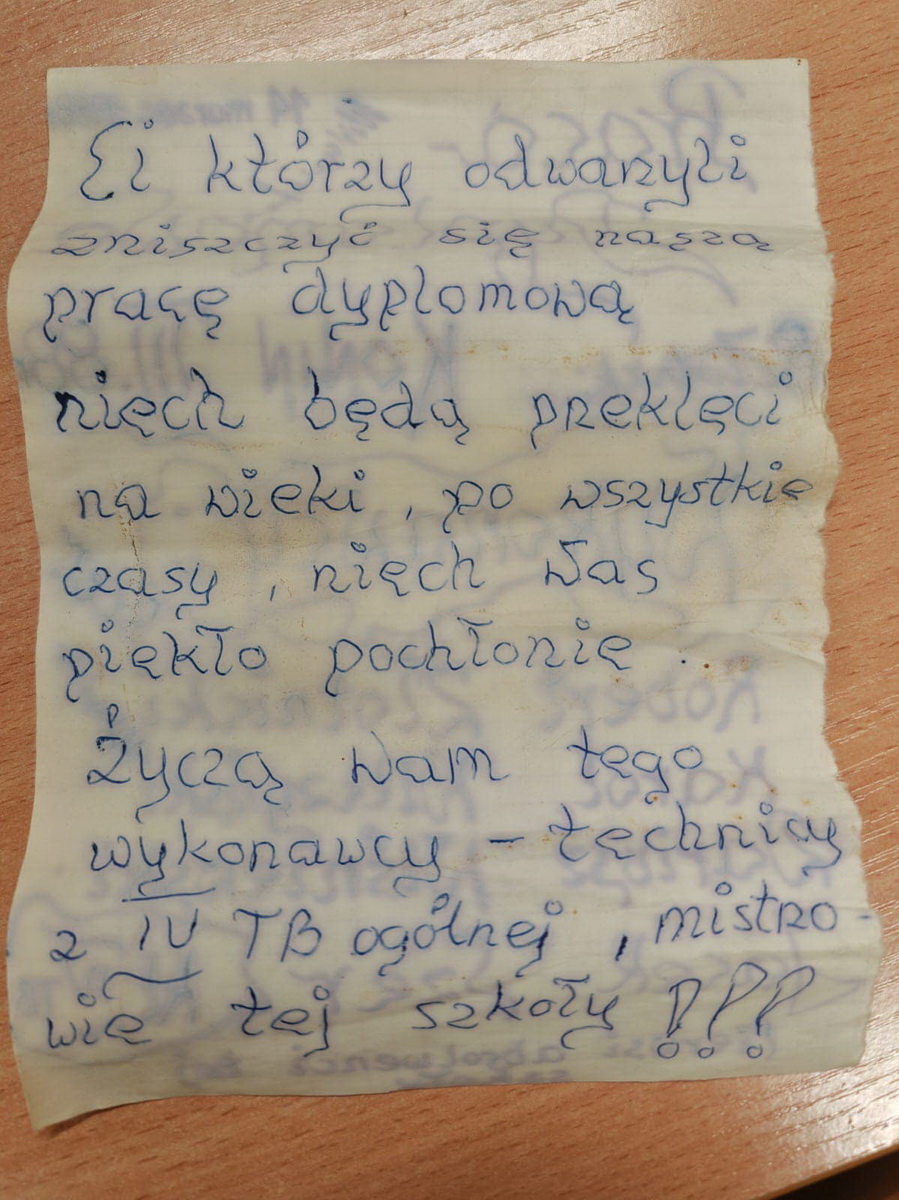 Ci którzy odważyli
zniszczyć się naszą
pracę dyplomową
niech będą preklęci
na wieki, po wszystkie
czasy, niech Was
piekło pochłonie.
Życzą Wam tego
wykonawcy - technicy
z IV TB ogólnej, mistrzo-
wie tej szkoły !!!